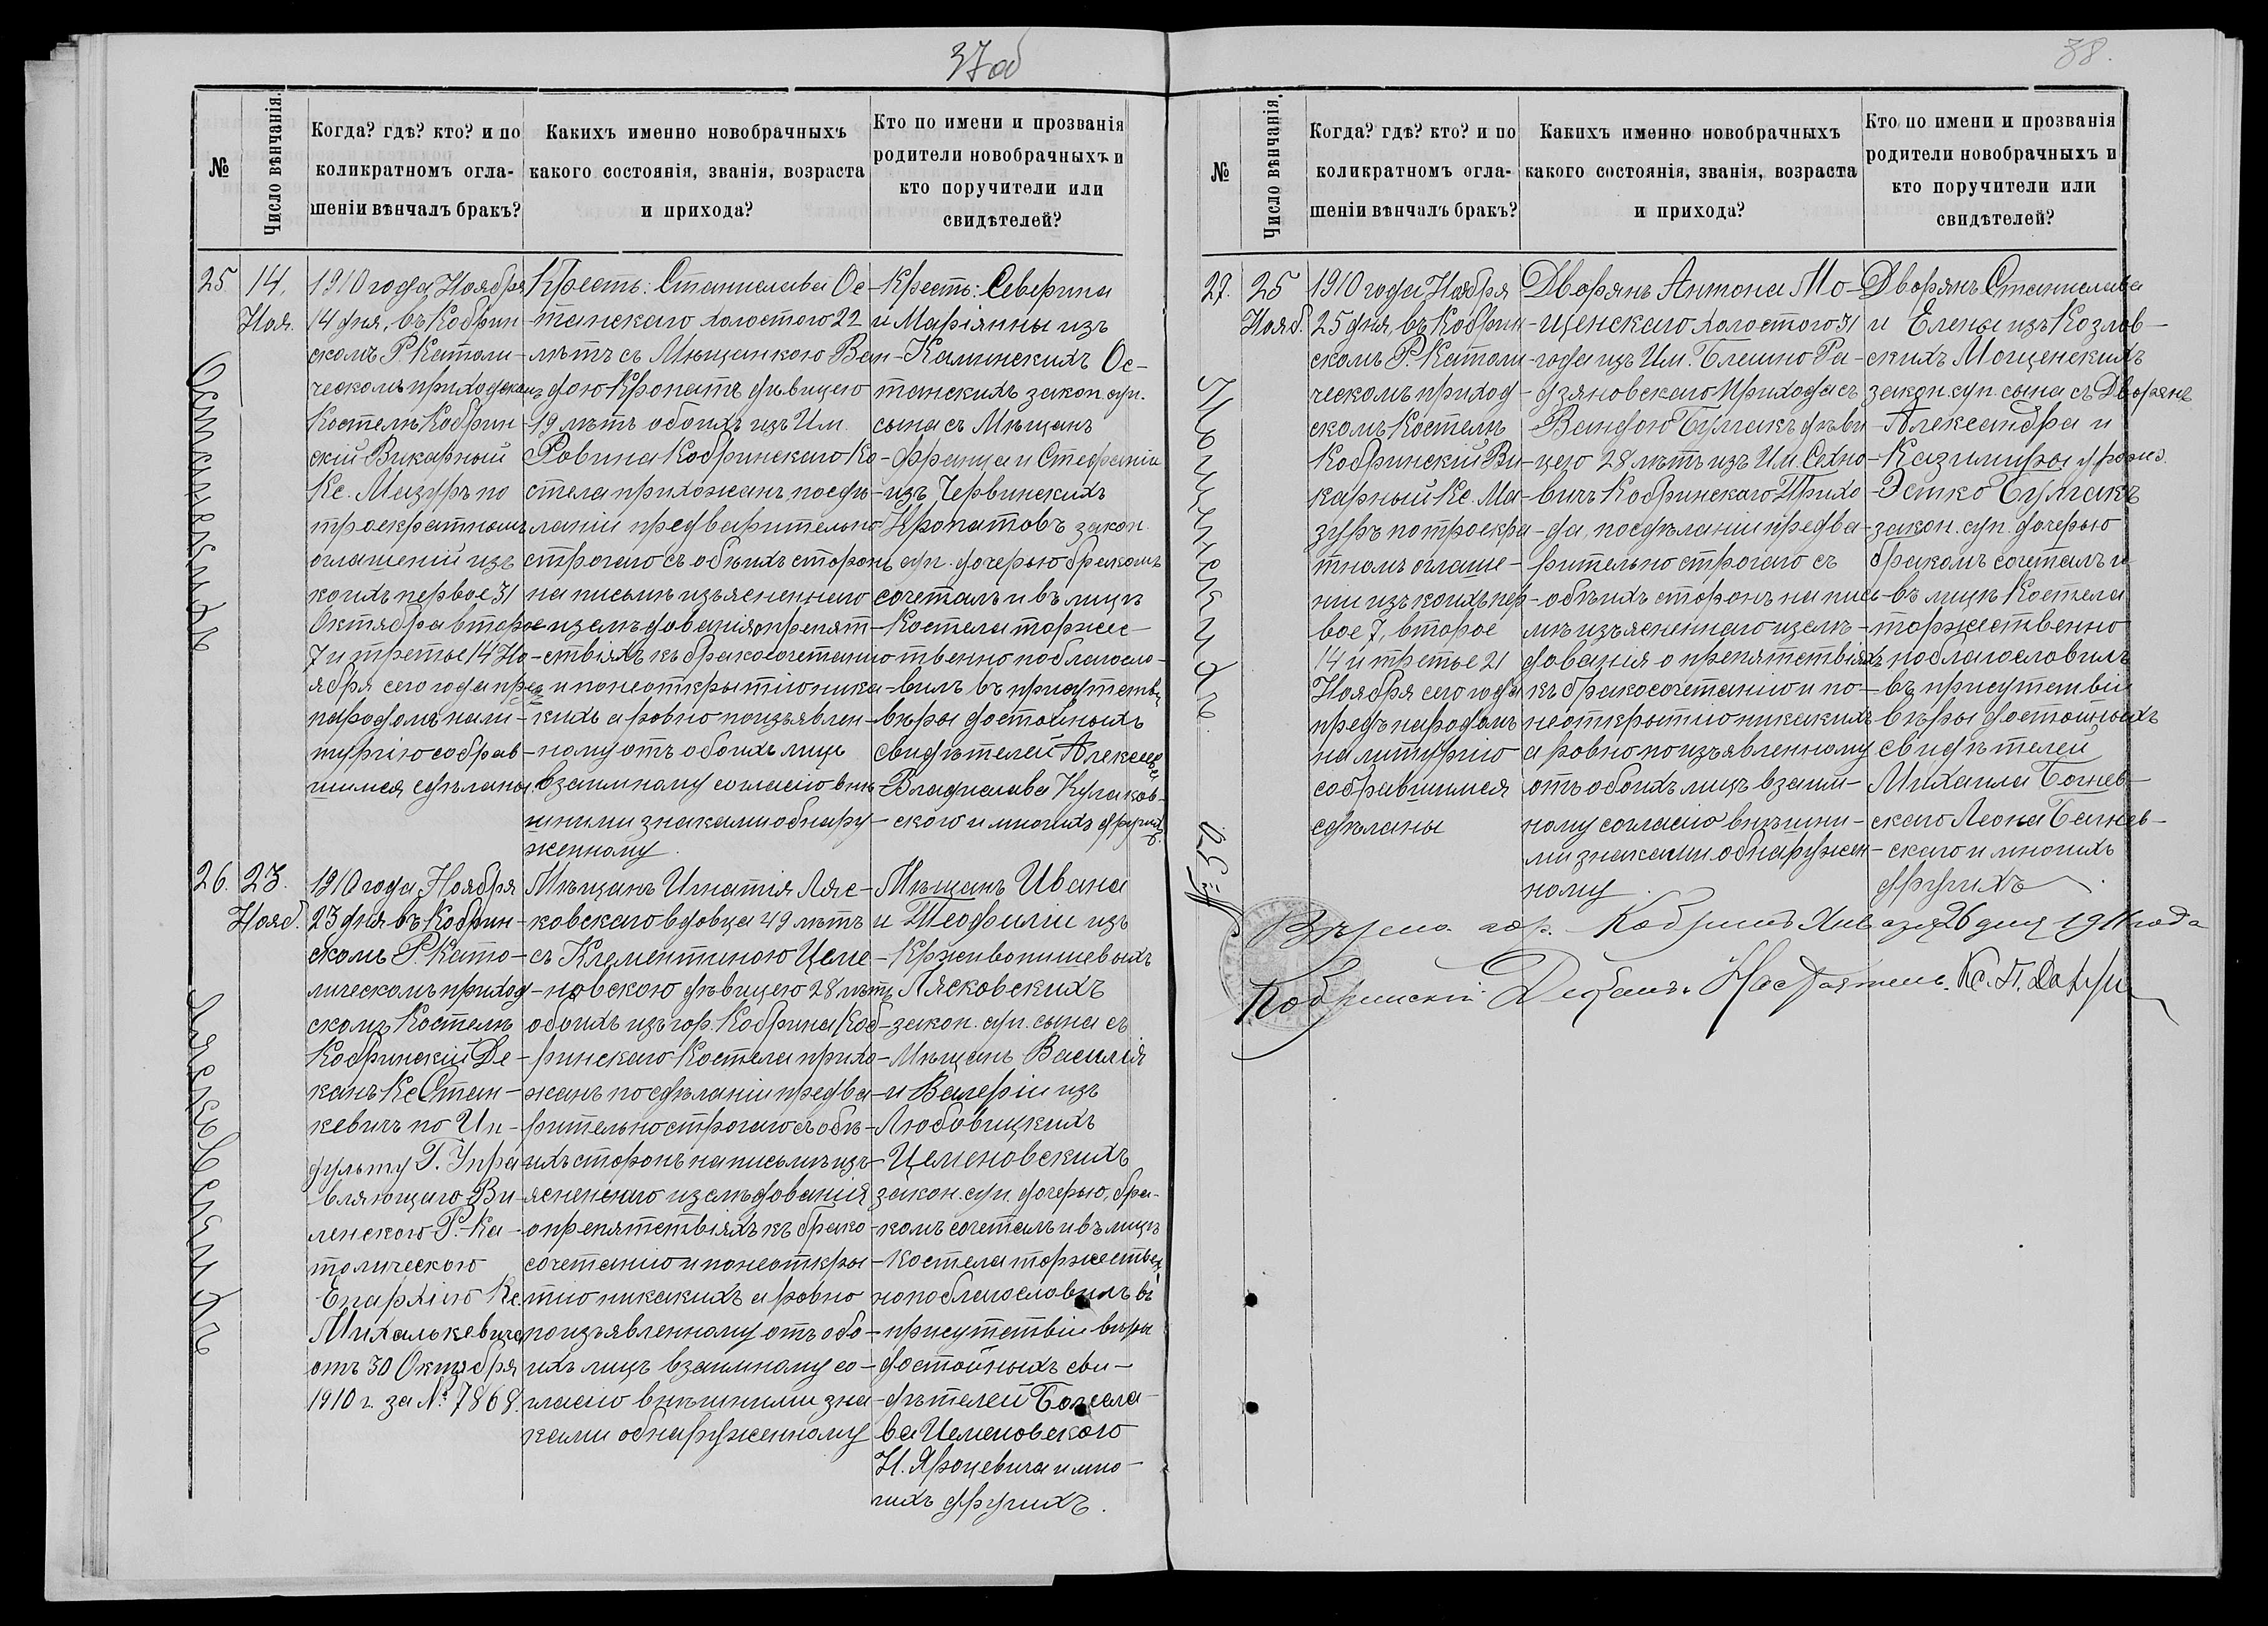 37об
№
Число вѣнчанія.
Когда? гдѣ? кто? и по
коликратномъ огла-
шеніи вѣнчалъ бракъ?
Какихъ именно новобрачныхъ
какого состоянія, званія, возраста
и прихода?
Кто по имени и прозванія
родители новобрачныхъ и
кто поручители или
свидѣтелей?
25
14.
Ноя.
Останскихъ
1910 года Ноября
14 дня, въ Кобрин-
скомъ Р. Католи-
ческомъ приходскомъ
Костелѣ Кобрин-
скій Викарный
Кс. Мазуръ по
троекратномъ
оглашеніи изъ
коихъ первое 31
Октября второе
7 и третье 14 Но-
ября сего года предъ
народомъ на ли-
тургію собрав-
шимся сдѣланы
Крестъ: Станислава Ос-
танскаго холостого 22
лѣтъ съ Мѣщанкою Ван-
дою Кропатъ дѣвицею
19 лѣтъ обоихъ изъ Им.
Ровина Кобринскаго Ко-
стела прихожанъ посдѣ-
ланіи предварительно
строгаго съ обѣихъ сторонъ
на письмѣ изъясненнаго
изслѣдованія о препят-
ствіяхъ къ бракосочетанію
и понеоткрытію ника-
кихъ а ровно поизъявлен-
ному отъ обоихъ лицъ
взаимному согласію внѣ-
шними знаками обнару-
женному.
Крестъ: Северина
и Маріянны изъ
Калинскихъ Ос-
танскихъ закон. суп.
сына съ Мѣщанъ
Франца и Стефаніи
изъ Червинскихъ
Кропатовъ закон.
суп. дочерью бракомъ
сочеталъ и въ лицѣ
Костела торжес-
твенно поблагосло-
вилъ въ присутствіи
вѣры достойныхъ
свидѣтелей
Владислава Кулаков-
ского и многихъ другихъ.
26.
23.
Нояб.
Лясковскихъ
1910 года Ноября
23 дня въ Кобрин-
скомъ Р. Като-
лическомъ приход-
скомъ Костелѣ
Кобринскій Де-
канъ Кс Стан-
кевичъ по Ин-
дульту Г. Упра-
вляющаго Ви-
ленскою Р. Ка-
толическою
Епархіею Кс.
Михалькевича
отъ 30 Октября
1910 г. за № 7868.
Мѣщанъ Игнатія Ляс-
ковскаго вдовца 49 лѣтъ
съ Клементиною Цеме-
новскою дѣвицею 28 лѣтъ
обоихъ изъ гор. Кобрина Коб-
ринскаго Костела прихо-
жанъ посдѣланіи предва-
рительно строгаго съ обѣ-
ихъ сторонъ на письмѣ изъ-
ясненнаго изслѣдованія
о препятствіяхъ къ брако-
сочетанію и понеоткры-
тію никакихъ а ровно
поизъявленному отъ обо-
ихъ лицъ взаимному со-
гласію внѣшними зна-
ками обнаруженному
Мѣщанъ Ивана
и Теофиліи изъ
Лясковскихъ
закон. суп. сына съ
Мѣщанъ Василія
и Валеріи изъ
Любовицкихъ
Цеменовскихъ
закон. суп. дочерью, бра-
комъ сочеталъ и въ лицѣ
Костела торжествен-
но поблагословилъ въ
присутствіи вѣры
достойныхъ сви-
дѣтелей Болесла-
ва Цеменовского
Н. Яроцевича и мно-
гихъ другихъ.
38.
№
Число вѣнчанія.
Когда? гдѣ? кто? и по
коликратномъ огла-
шеніи вѣнчалъ бракъ?
Какихъ именно новобрачныхъ
какого состоянія, званія, возраста
и прихода?
Кто по имени и прозванія
родители новобрачныхъ и
кто поручители или
свидѣтелей?
27.
25
Нояб.
Мощенскихъ.
1910 года Ноября
25 дня, въ Кобрин-
скомъ Р. Католи-
ческомъ приход-
скомъ Костелѣ
Кобринскій Ви-
карный Кс. Ма-
зуръ по троекра-
тномъ оглаше-
ніи изъ коихъ пер-
вое 7, второе
14 и третье 21
Ноября сего года
предъ народомъ
на литургію
собравшимся
сдѣланы
Дворянъ Антона Мо-
щенскаго холостого 31
года изъ Им. Блешно Ра-
дзяновскаго Прихода съ
Вандою Булгакъ дѣви-
цею 28 лѣтъ изъ Им. Сехно-
вичъ Кобринскаго Прихо-
да, посдѣланіи предва-
рительно строгаго съ
обѣихъ сторонъ на пись-
мѣ изъясненнаго изслѣ-
дованія о препятствіяхъ
къ бракосочетанію и по-
неоткрытію никакихъ
а ровно поизъявленному
отъ обоихъ лицъ взаим-
ному согласію внѣшни-
ми знаками обнаружен-
ному
Дворянъ Станислава
и Елены изъ Козлов-
скихъ Мощенскихъ
закон. суп. сына съ Дворянъ
Александра и
Казимиры урожд.
Эстко Булгакъ
закон. суп. дочерью
бракомъ сочеталъ и
въ лицѣ Костела
торжественно
поблагословилъ
въ присутствіи
вѣры достойныхъ
свидѣтелей
Михаила
скаго Леона
скаго и многихъ
другихъ.
Вѣрно. гор. Кобринъ Января 26 дня 1911 года
Кобринскій Деканъ Настоятель Кс.